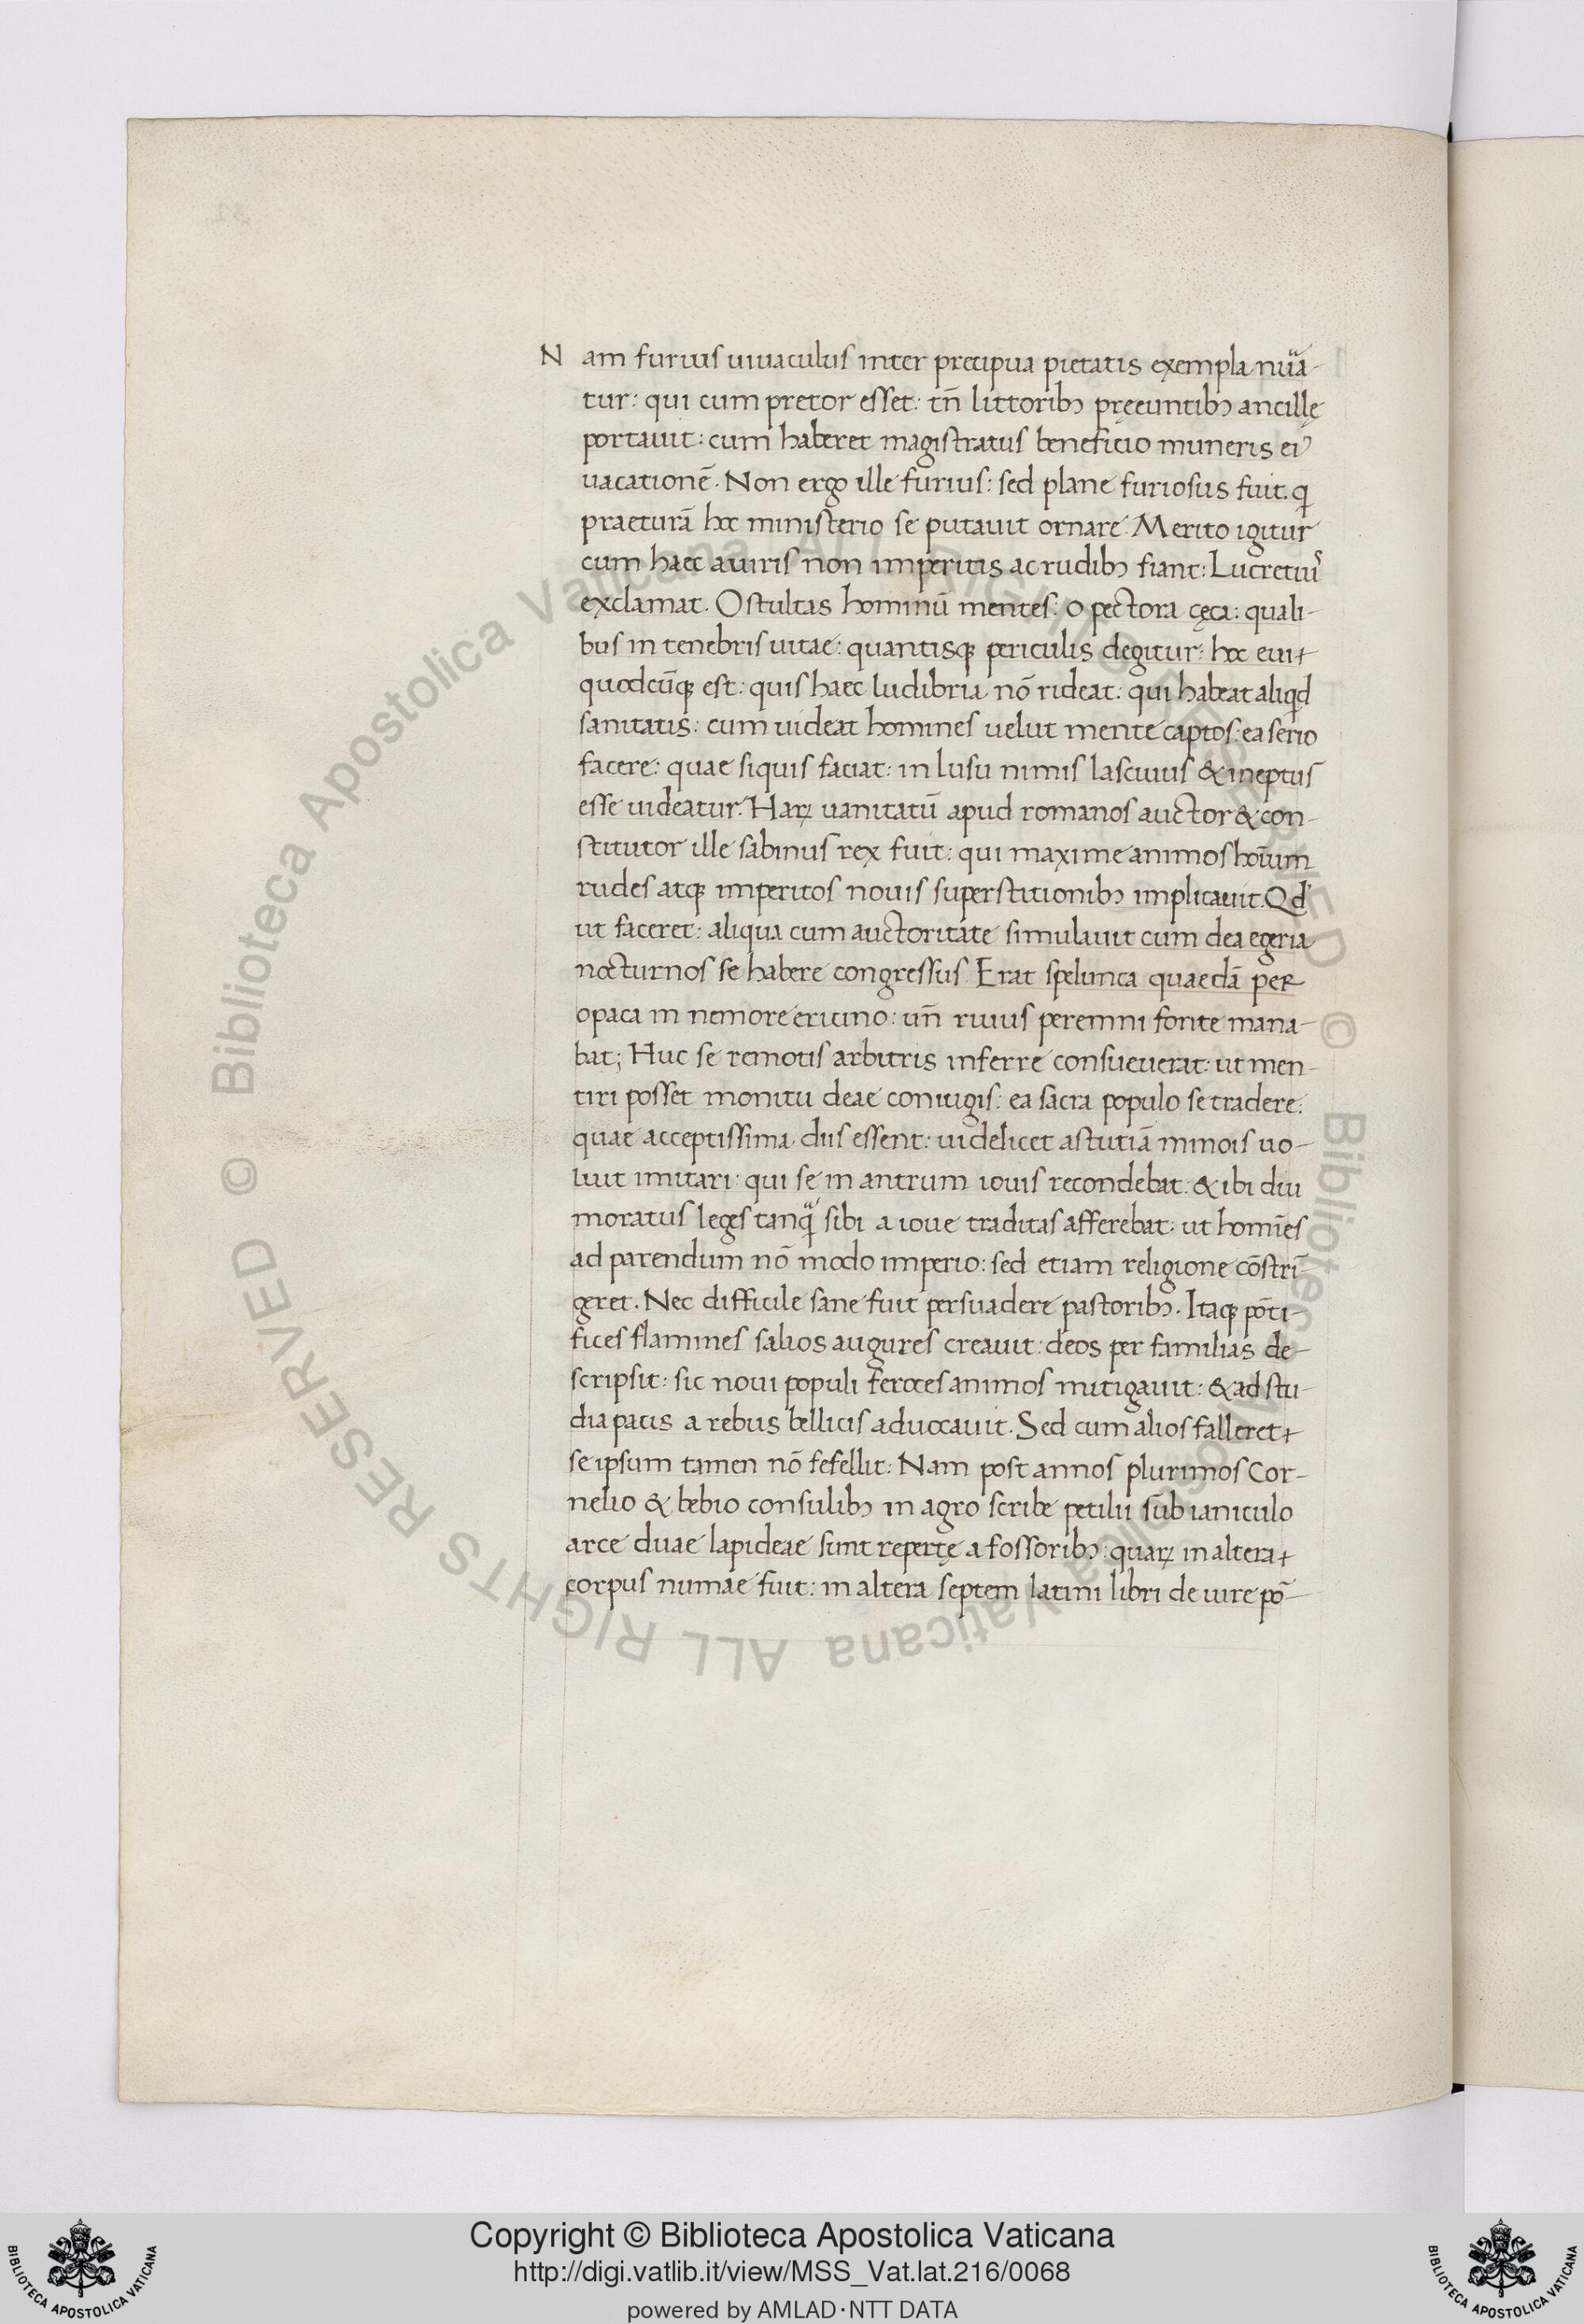 Nam furius uiuaculus inter precipua pietatis exempla nũa-
tur: qui cum pretor esset: tñ littoribꝫ pręeuntibꝫ ancillę
portauit: cum haberet magistratus beneficio muneris ei9
uacationē. Non ergo ille furius: sed plane furiosus fuit. q
praeturā hoc ministerio se putauit ornare. Merito igitur
cum haec a uiris non imperitis ac rudibꝫ fiant: Lucretius
exclamat. O stultas hominũ mentes: o pectora cęca: quali-
bus in tenebris uitae: quantisqꝫ periculis degitur: hoc eui
quodcũqꝫ est: quis haec ludibria nō rideat: qui habeat aliqd
sanitatis: cum uideat homines uelut mente captos: ea serio
facere: quae siquis faciat: in lusu nimis lasciuus & ineptus
esse uideatur. Haꝝ uanitatũ apud romanos auctor & con-
stitutor ille sabinus rex fuit: qui maxime animos hoĩum
rudes atqꝫ imperitos nouis superstitionibꝫ implicauit. Qd'
ut faceret: aliqua cum auctoritate simulauit cum dea egeria
nocturnos se habere congressus. Erat spelunca quaedā per
opaca in nemore ericino: uñ riuus peremni fonte mana-
bat; Huc se remotis arbitris inferre consueuerat: ut men-
tiri posset monitu deae coniugis: ea sacra populo se tradere:
quae acceptissima diis essent: uidelicet astutiā minois uo-
luit imitari: qui se in antrum iouis recondebat: & ibi diu
moratus leges tanq̃ sibi a ioue traditas afferebat: ut homĩes
ad parendum nō modo imperio: sed etiam religione cōstrĩ-
geret. Nec difficile sane fuit persuadere pastoribꝫ. Itaqꝫ pōti-
fices flamines salios augures creauit: deos per familias de-
scripsit: sic noui populi feroces animos mitigauit: & ad stu-
dia pacis a rebus bellicis aduocauit. Sed cum alios falleret
se ipsum tamen nō fefellit: Nam post annos plurimos Cor-
nelio & bebio consulibꝫ in agro scribe petilii sub ianiculo
arce duae lapideae sunt repertę a fossoribꝫ: quaꝝ in altera
corpus numae fuit: in altera septem latini libri de iure pō-
© Biblioteca Apostolica Vaticana ALL RIGHTS RESERVED © Biblioteca Apostolica Vaticana ALL RIGHTS RESERVED
Copyright © Biblioteca Apostolica Vaticana
http://digi.vatlib.it/view/MSS_Vat.lat.216/0068
powered by AMLAD·NTT DATA
BIBLIOTECA APOSTOLICA VATICANA
BIBLIOTECA APOSTOLICA VATICANA